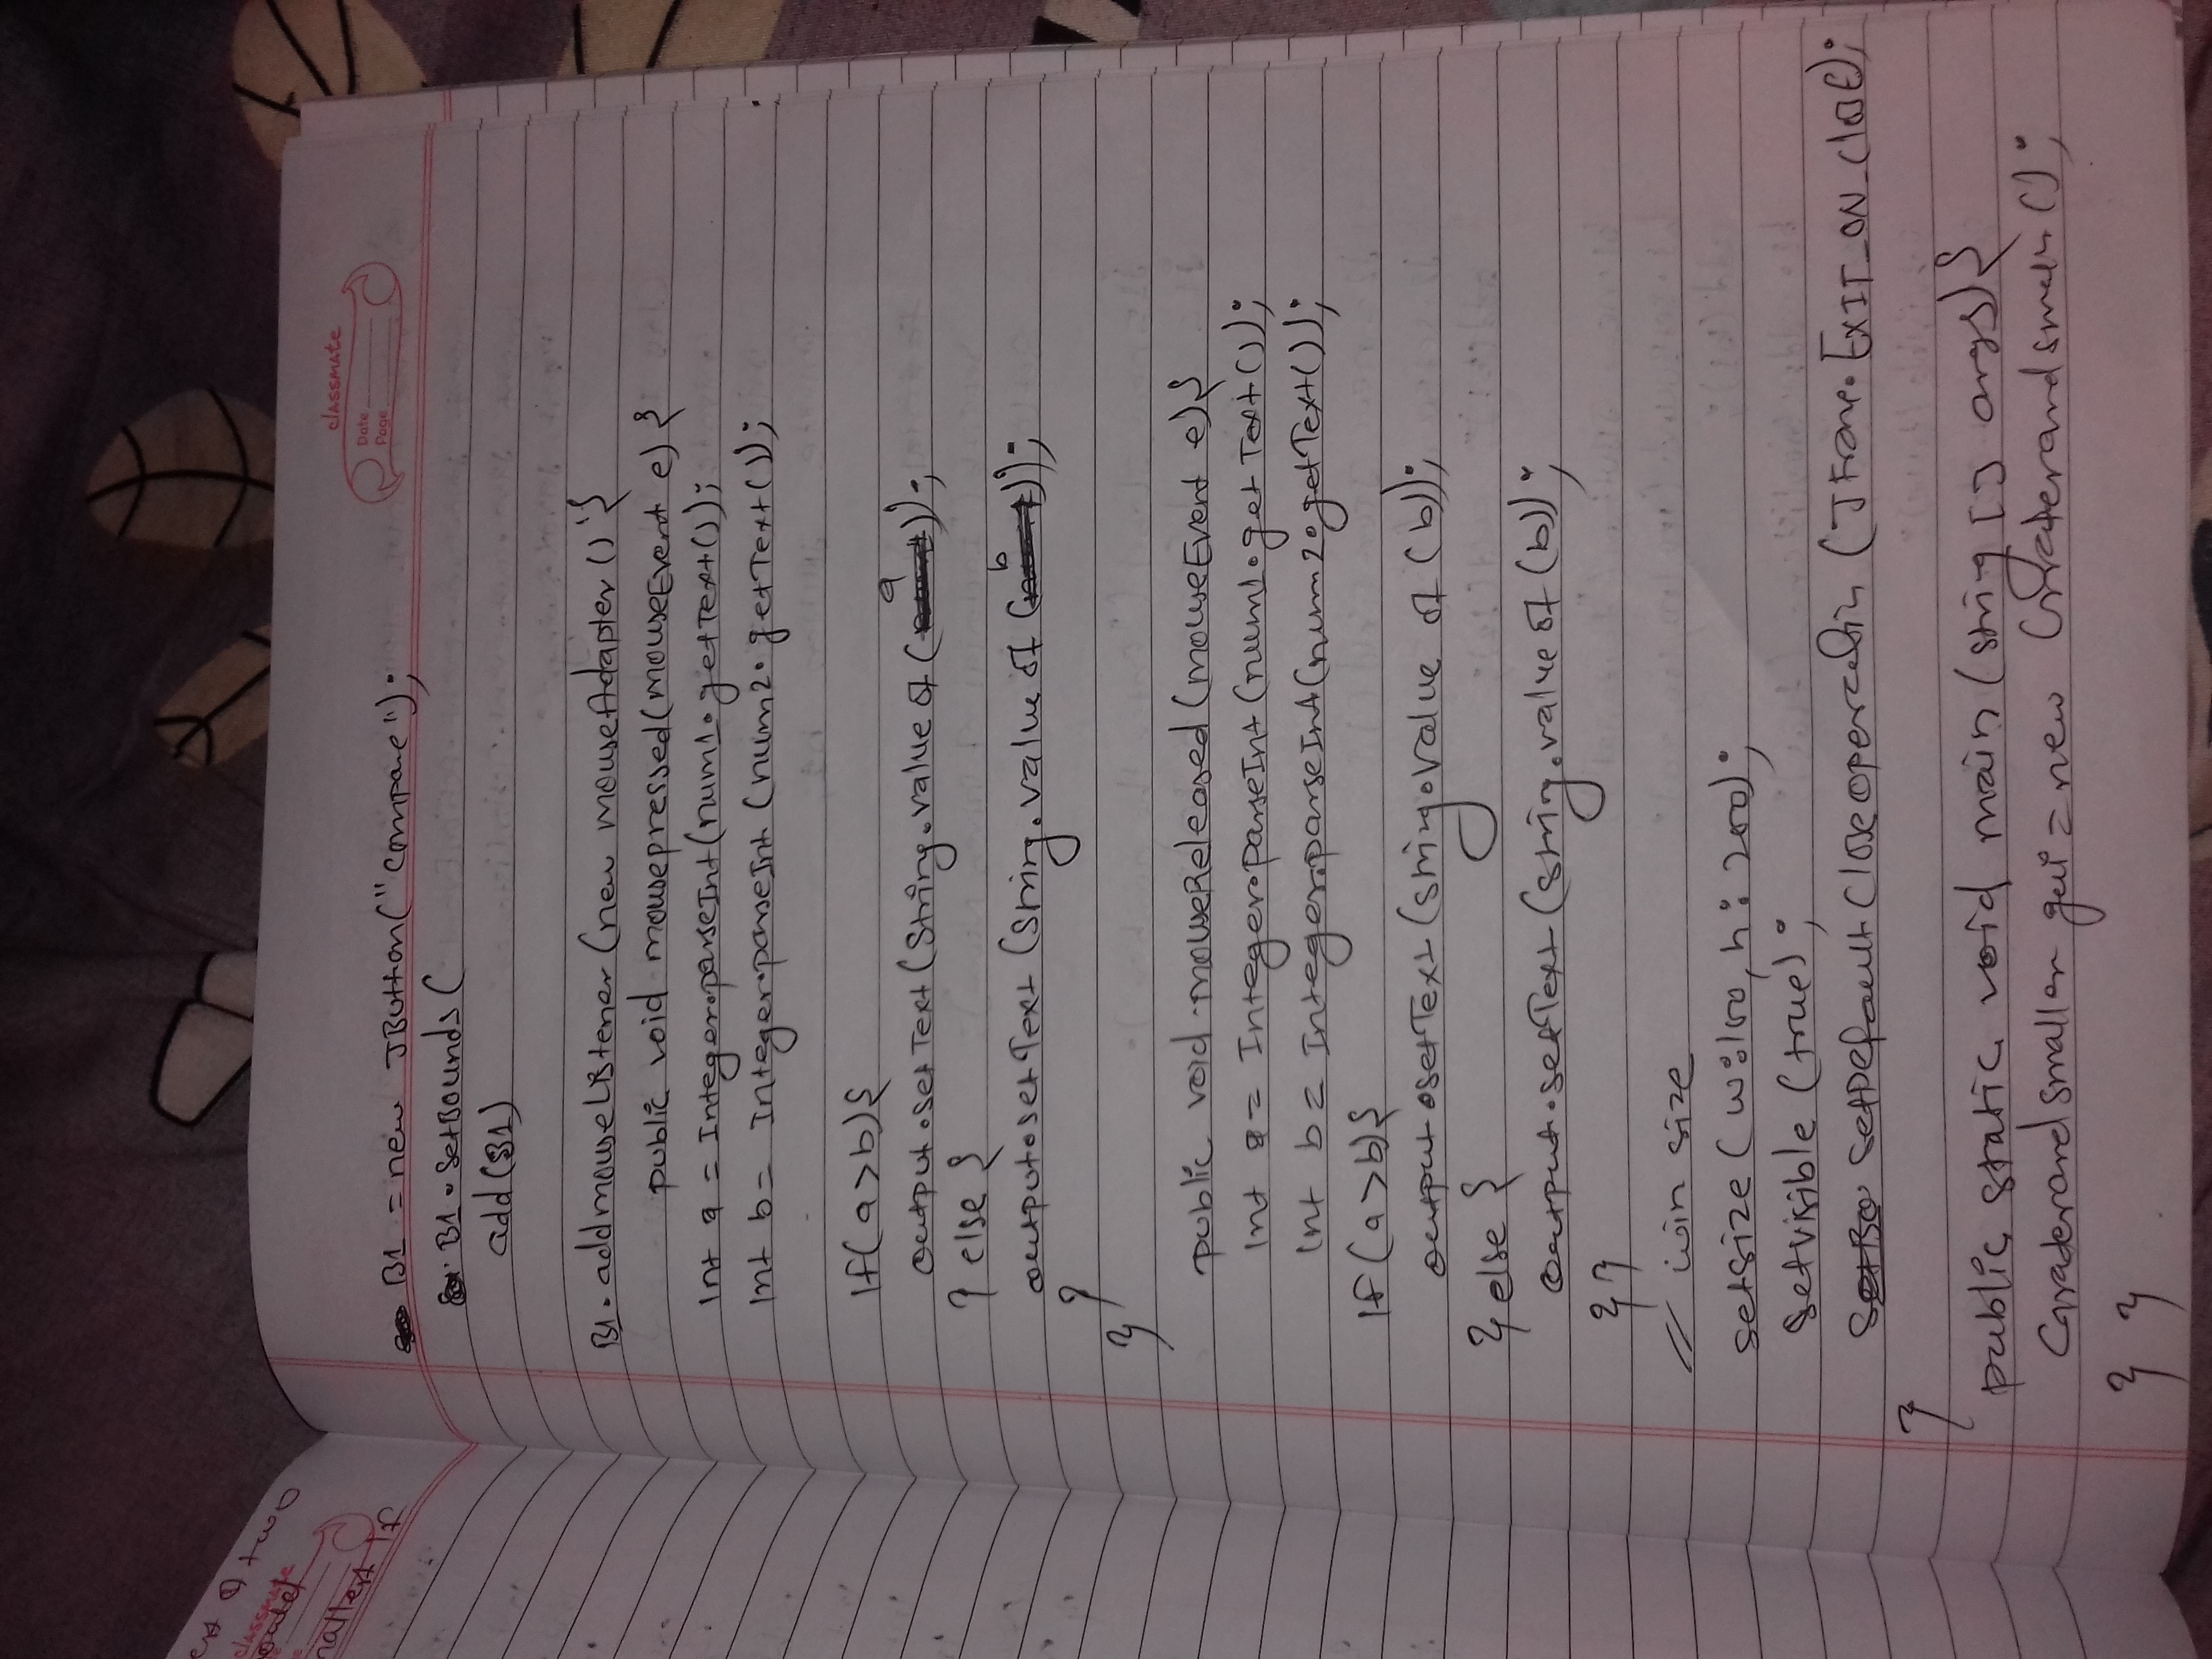 est of two
classmate
mallest
classmate
Date
Page
B1 = new JButton("Compare");
B1.setBounds(
add(B1)
B1.addmouseListener(new mouseAdapter(){
public void mousepressed(mouseEvent e) {
Int a = Integer.parseInt(num1.getText());
Int b = Integer.parseInt(num2.getText());
If(a>b){
output.setText(String.value of (a));
} else {
output.setText(String.value of (b));
}
}
public void mouseReleased(mouseEvent e){
Int a = Integer.parseInt(num1.getText());
Int b = Integer.parseInt(num2.getText());
If(a>b){
output.setText(string.value of (b));
} else {
output.setText(string.value of (b));
} }
// win size
setsize(w:100, h:200);
Setvisible(true);
SetDefaultCloseoperation(JFrame.EXIT_ON_ClosE);
}
public static void main(string [] args){
Graterandsmaller gui = new
} }